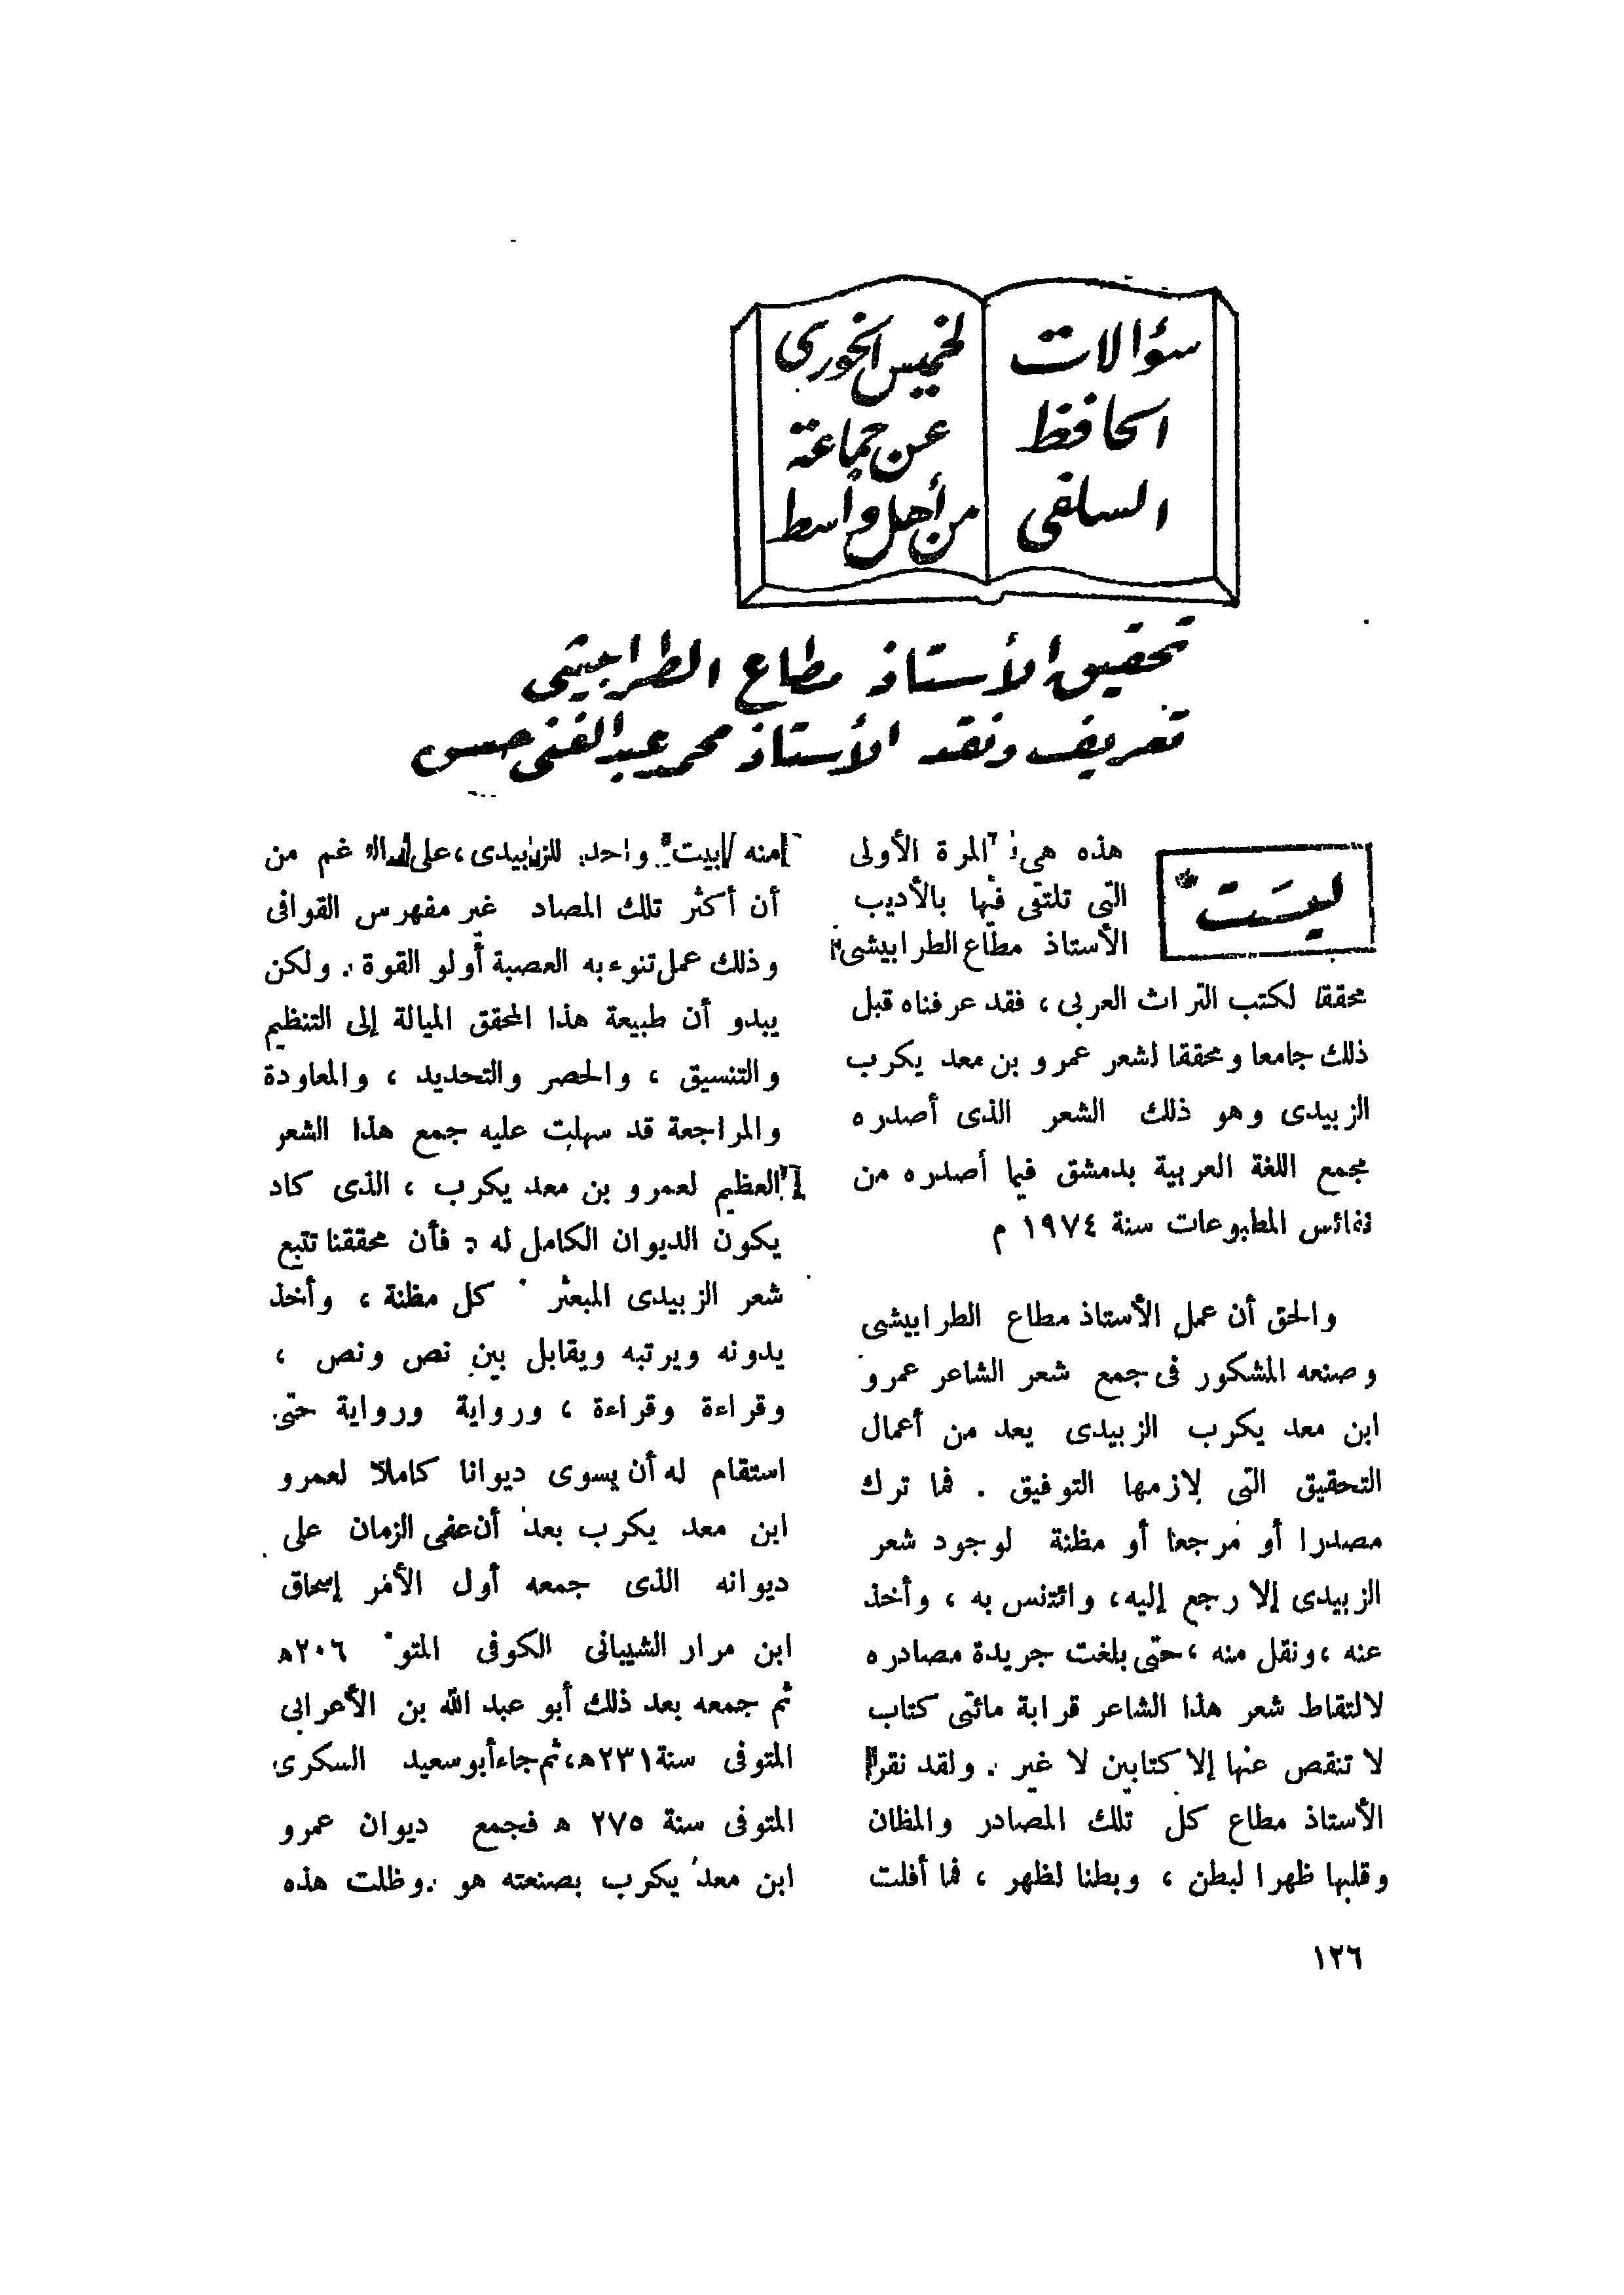 سؤالات
الحافظ
السلفى
لخميس الحوزى
عن جماعة
من أهل واسط
تحقيق الأستاذ مطاع الطرابيشى
تعريف ونقد الأستاذ محمد عبد الغنى حسن
ليسَت
هذه هى المرة الأولى
التى تلتقى فيها بالأديب
الأستاذ مطاع الطرابيشى
محققا لكتب التراث العربى ، فقد عرفناه قبل
ذلك جامعا ومحققا لشعر عمرو بن معد يكرب
الزبيدى وهو ذلك الشعر الذى أصدره
مجمع اللغة العربية بدمشق فيما أصدره من
نفائس المطبوعات سنة ١٩٧٤ م
والحق أن عمل الأستاذ مطاع الطرابيشى
وصنعه المشكور فى جمع شعر الشاعر عمرو
ابن معد يكرب الزبيدى يعد من أعمال
التحقيق التى لازمها التوفيق . فما ترك
مصدرا أو مرجعا أو مظنة لوجود شعر
الزبيدى إلا رجع إليه ، وائتنس به ، وأخذ
عنه ، ونقل منه ، حتى بلغت جريدة مصادره
لالتقاط شعر هذا الشاعر قرابة مائتى كتاب
لا تنقص عنها إلا كتابين لا غير . ولقد نقر
الأستاذ مطاع كل تلك المصادر والمظان
وقلبها ظهرا لبطن ، وبطنا لظهر ، فما أفلت
منه بيت واحد للزبيدى ، على الرغم من
أن أكثر تلك المصاد غير مفهرس القوافى
وذلك عمل تنوء به العصبة أولو القوة . ولكن
يبدو أن طبيعة هذا المحقق الميالة إلى التنظيم
والتنسيق ، والحصر والتحديد ، والمعاودة
والمراجعة قد سهلت عليه جمع هذا الشعر
العظيم لعمرو بن معد يكرب ، الذى كاد
يكون الديوان الكامل له : فأن محققنا تتبع
شعر الزبيدى المبعثر كل مظنة ، وأخذ
يدونه ويرتبه ويقابل بين نص ونص ،
وقراءة وقراءة ، ورواية ورواية حتى
استقام له أن يسوى ديوانا كاملا لعمرو
ابن معد يكرب بعد أن عفى الزمان على
ديوانه الذى جمعه أول الأمر إسحاق
ابن مرار الشيبانى الكوفى المتو ٢٠٦ه
ثم جمعه بعد ذلك أبو عبد الله بن الأعرابى
المتوفى سنة ٢٣١ه ، ثم جاء أبو سعيد السكرى
المتوفى سنة ٢٧٥ ه فجمع ديوان عمرو
ابن معد يكرب بصنعته هو . وظلت هذه
١٢٦